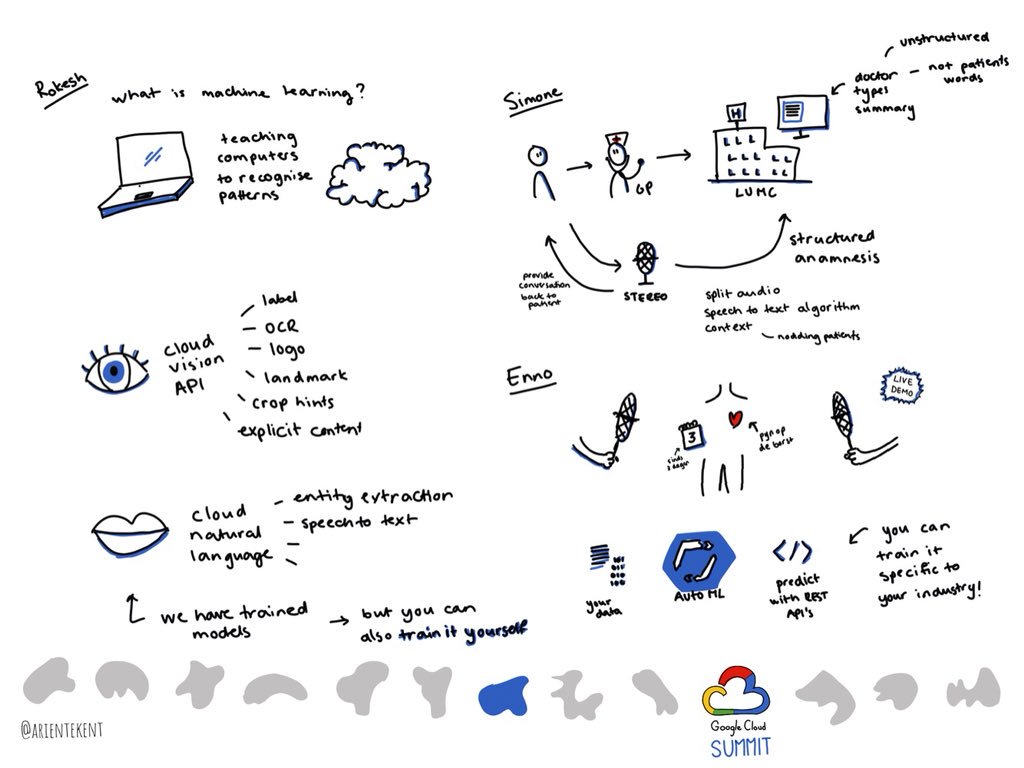 Rokesh
what is machine learning?
teaching
computers
to recognise
patterns
cloud
vision
API
label
OCR
logo
landmark
crop hints
explicit content
cloud
natural
language
entity extraction
speech to text
we have trained
models
but you can
also train it yourself
Simone
GP
H
LUMC
doctor
types
summary
unstructured
not patients
words
provide
conversation
back to
patient
STEREO
structured
anamnesis
split audio
speech to text algorithm
context
nodding patients
Enno
LIVE
DEMO
3
sinds
3 dagen
pijn op
de borst
your
data
011
011
010
100
Auto ML
</>
predict
with REST
API's
you can
train it
specific to
your industry!
@ARIENTEKENT
Google Cloud
SUMMIT